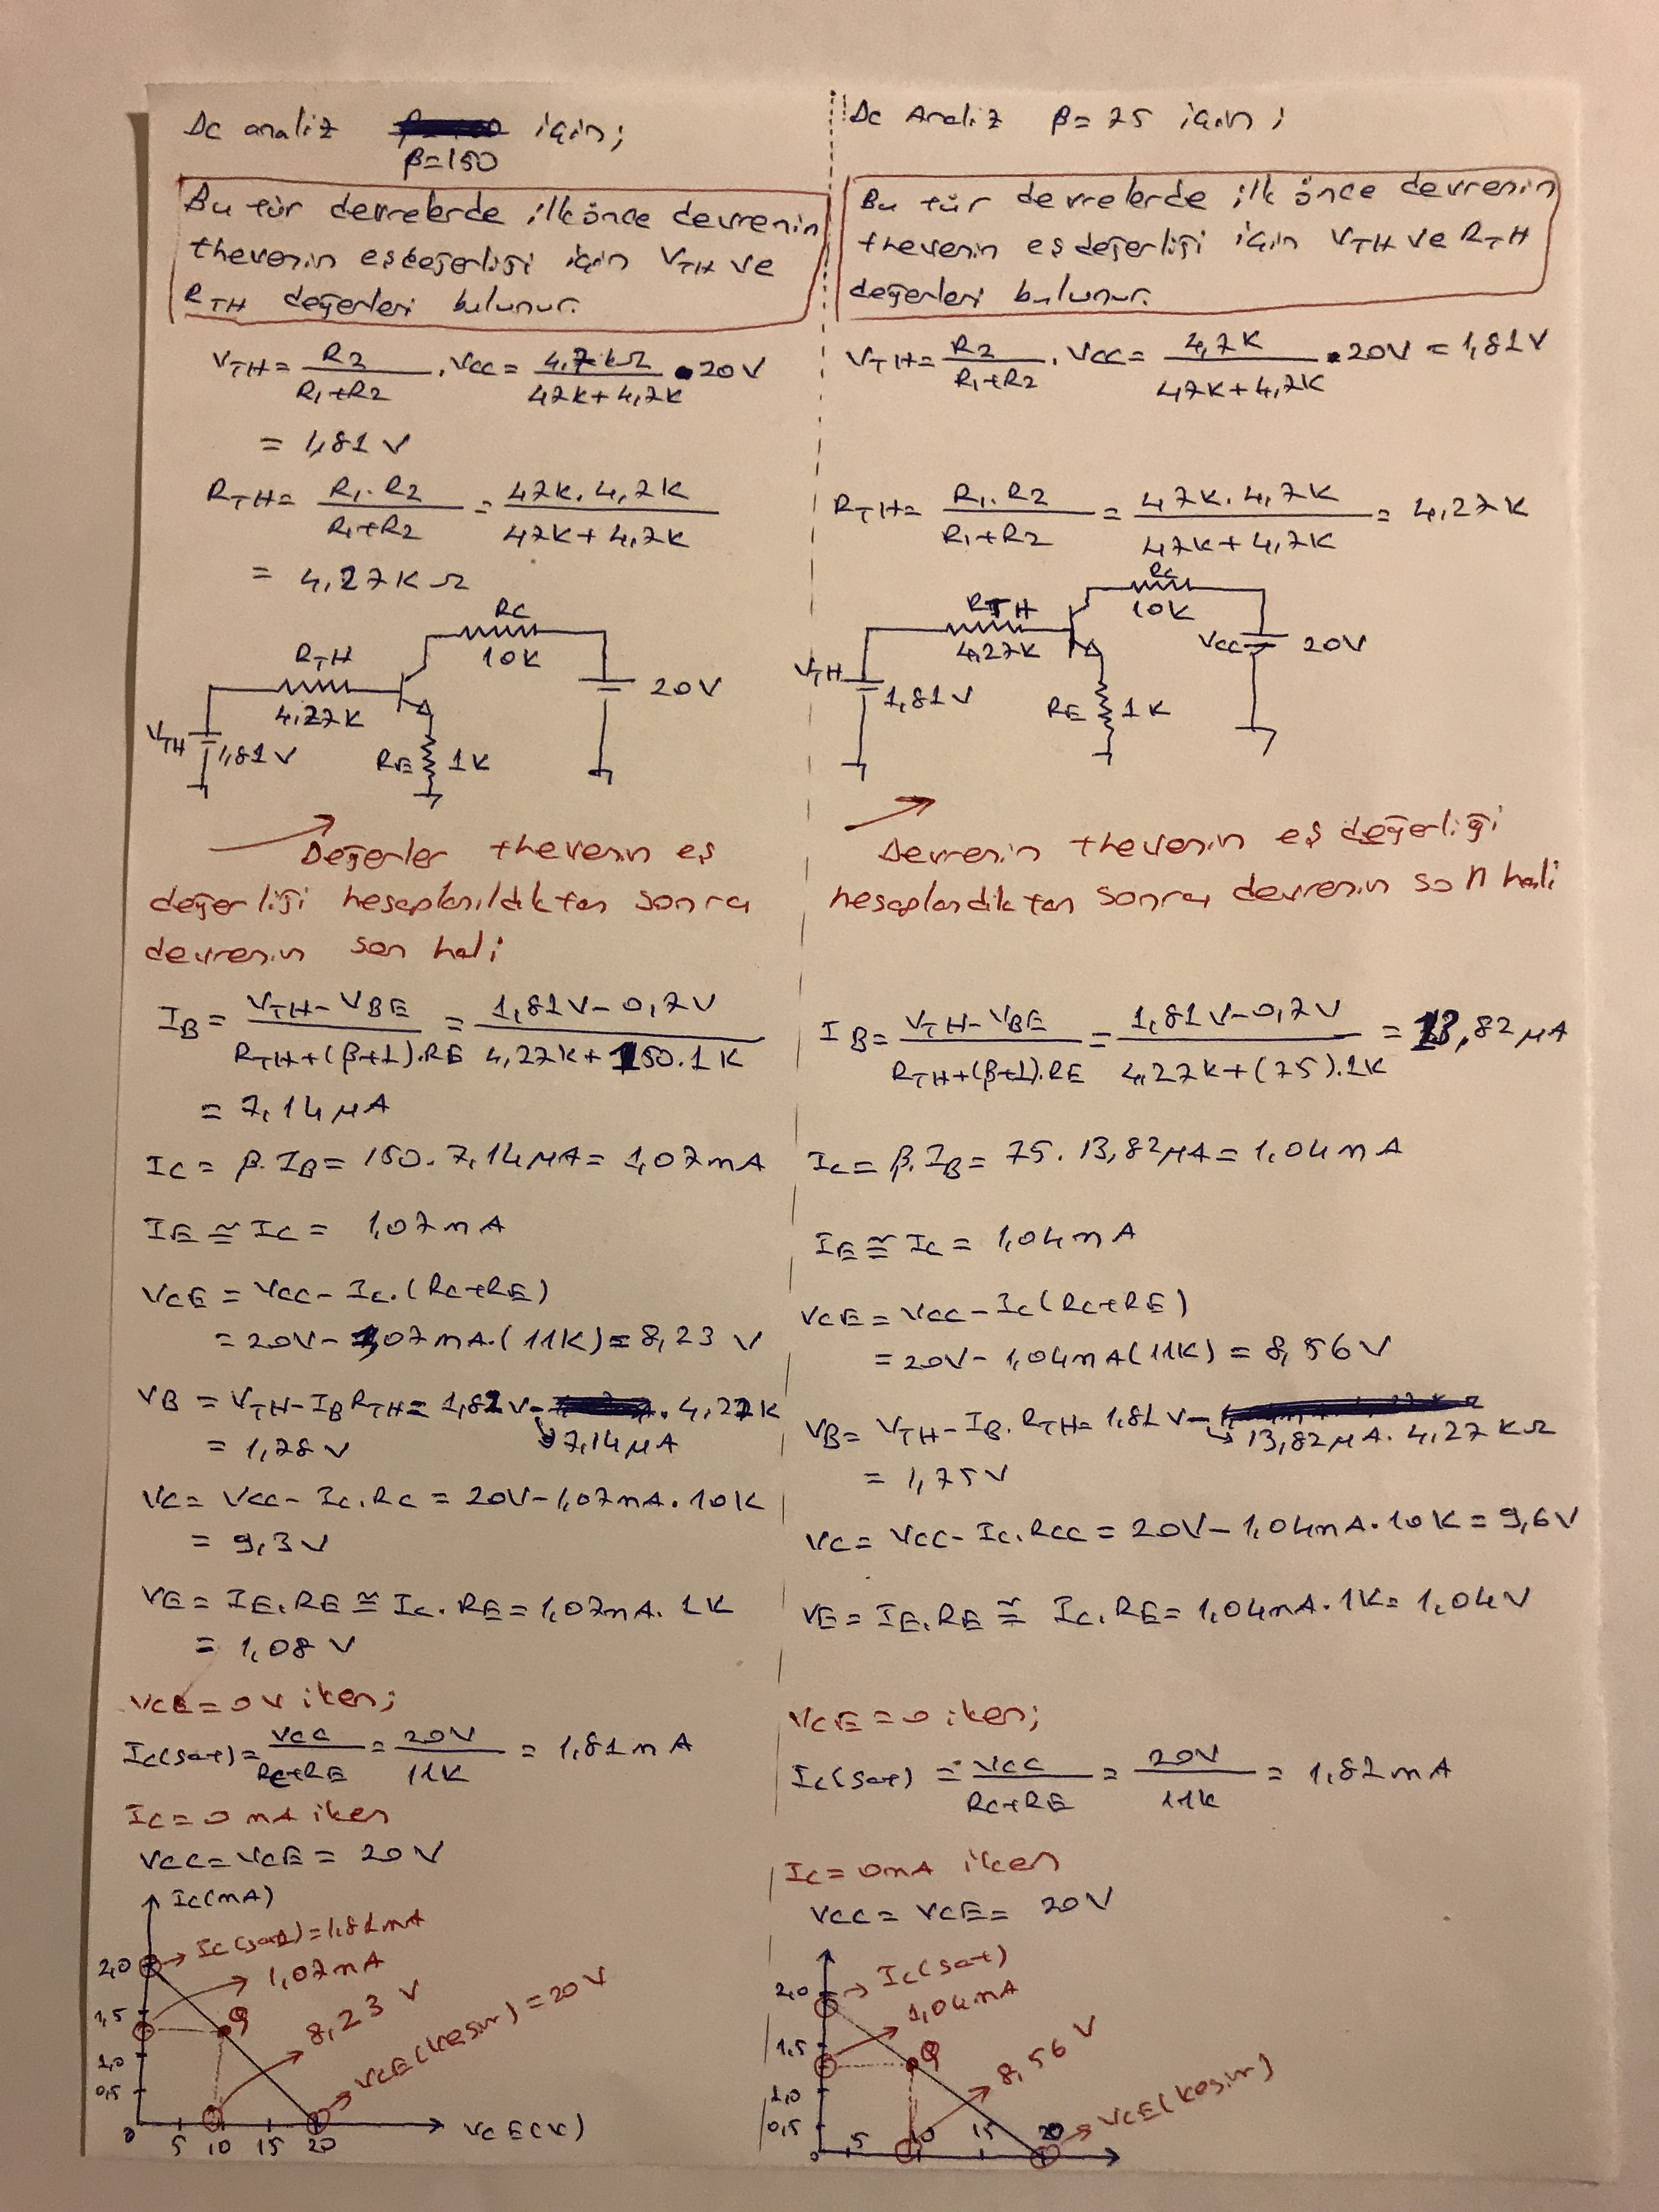 Dc analiz için;
β=150
Bu tür devrelerde ilk önce devrenin
thevenin eşdeğerliği için VTH ve
RTH değerleri bulunur.
VTH = R2 / R1+R2 . VCC = 4,7kΩ / 47K+4,7K . 20V
= 1,81 V
RTH = R1.R2 / R1+R2 = 47K.4,7K / 47K+4,7K
= 4,27KΩ
RC
10K
RTH
4,27K
20V
VTH
1,81V
RE 1K
Değerler thevenin eş
değerliği hesaplanıldıktan sonra
devrenin son hali
IB = VTH-VBE / RTH+(β+1).RE = 1,81V-0,7V / 4,27K+150.1K
= 7,14 μA
IC = β.IB = 150.7,14μA = 1,07mA
IE ≅ IC = 1,07mA
VCE = VCC - IC.(RC+RE)
= 20V-1,07mA.(11K) = 8,23 V
VB = VTH-IB RTH = 1,81V- . 4,27K
= 1,78V
7,14μA
VC = VCC - IC.RC = 20V-1,07mA.10K
= 9,3V
VE = IE.RE ≅ IC.RE = 1,07mA.1K
= 1,08 V
VCE = 0V iken;
IC(sat) = VCC / RC+RE = 20V / 11K = 1,81mA
IC = 0 mA iken
VCC = VCE = 20V
IC(mA)
IC(sat) = 1,81mA
2,0
1,07mA
1,5
Q
8,23 V
VCE(kesim) = 20V
1,0
0,5
0
5 10 15 20
VCE(V)
Dc Analiz β= 75 için;
Bu tür devrelerde ilk önce devrenin
thevenin eşdeğerliği için VTH ve RTH
değerleri bulunur.
VTH = R2 / R1+R2 . VCC = 4,7K / 47K+4,7K . 20V = 1,81V
RTH = R1.R2 / R1+R2 = 47K.4,7K / 47K+4,7K = 4,27K
RC
10K
RTH
4,27K
VCC
20V
VTH
1,81V
RE 1K
Devrenin thevenin eş değerliği
hesaplandıktan sonra devrenin son hali
IB = VTH-VBE / RTH+(β+1).RE = 1,81V-0,7V / 4,27K+(75).1K = 13,82μA
IC = β.IB = 75.13,82μA = 1,04mA
IE ≅ IC = 1,04mA
VCE = VCC-IC(RC+RE)
= 20V-1,04mA(11K) = 8,56V
VB = VTH-IB.RTH = 1,81V-
13,82μA.4,27KΩ
= 1,75V
VC = VCC-IC.RCC = 20V-1,04mA.10K = 9,6V
VE = IE.RE ≅ IC.RE = 1,04mA.1K = 1,04V
VCE = 0 iken;
IC(sat) = VCC / RC+RE = 20V / 11K = 1,81mA
IC = 0mA iken
VCC = VCE = 20V
IC(sat)
2,0
1,04mA
1,5
Q
8,56 V
1,0
VCE(kesim)
0,5
0
5 10 15 20